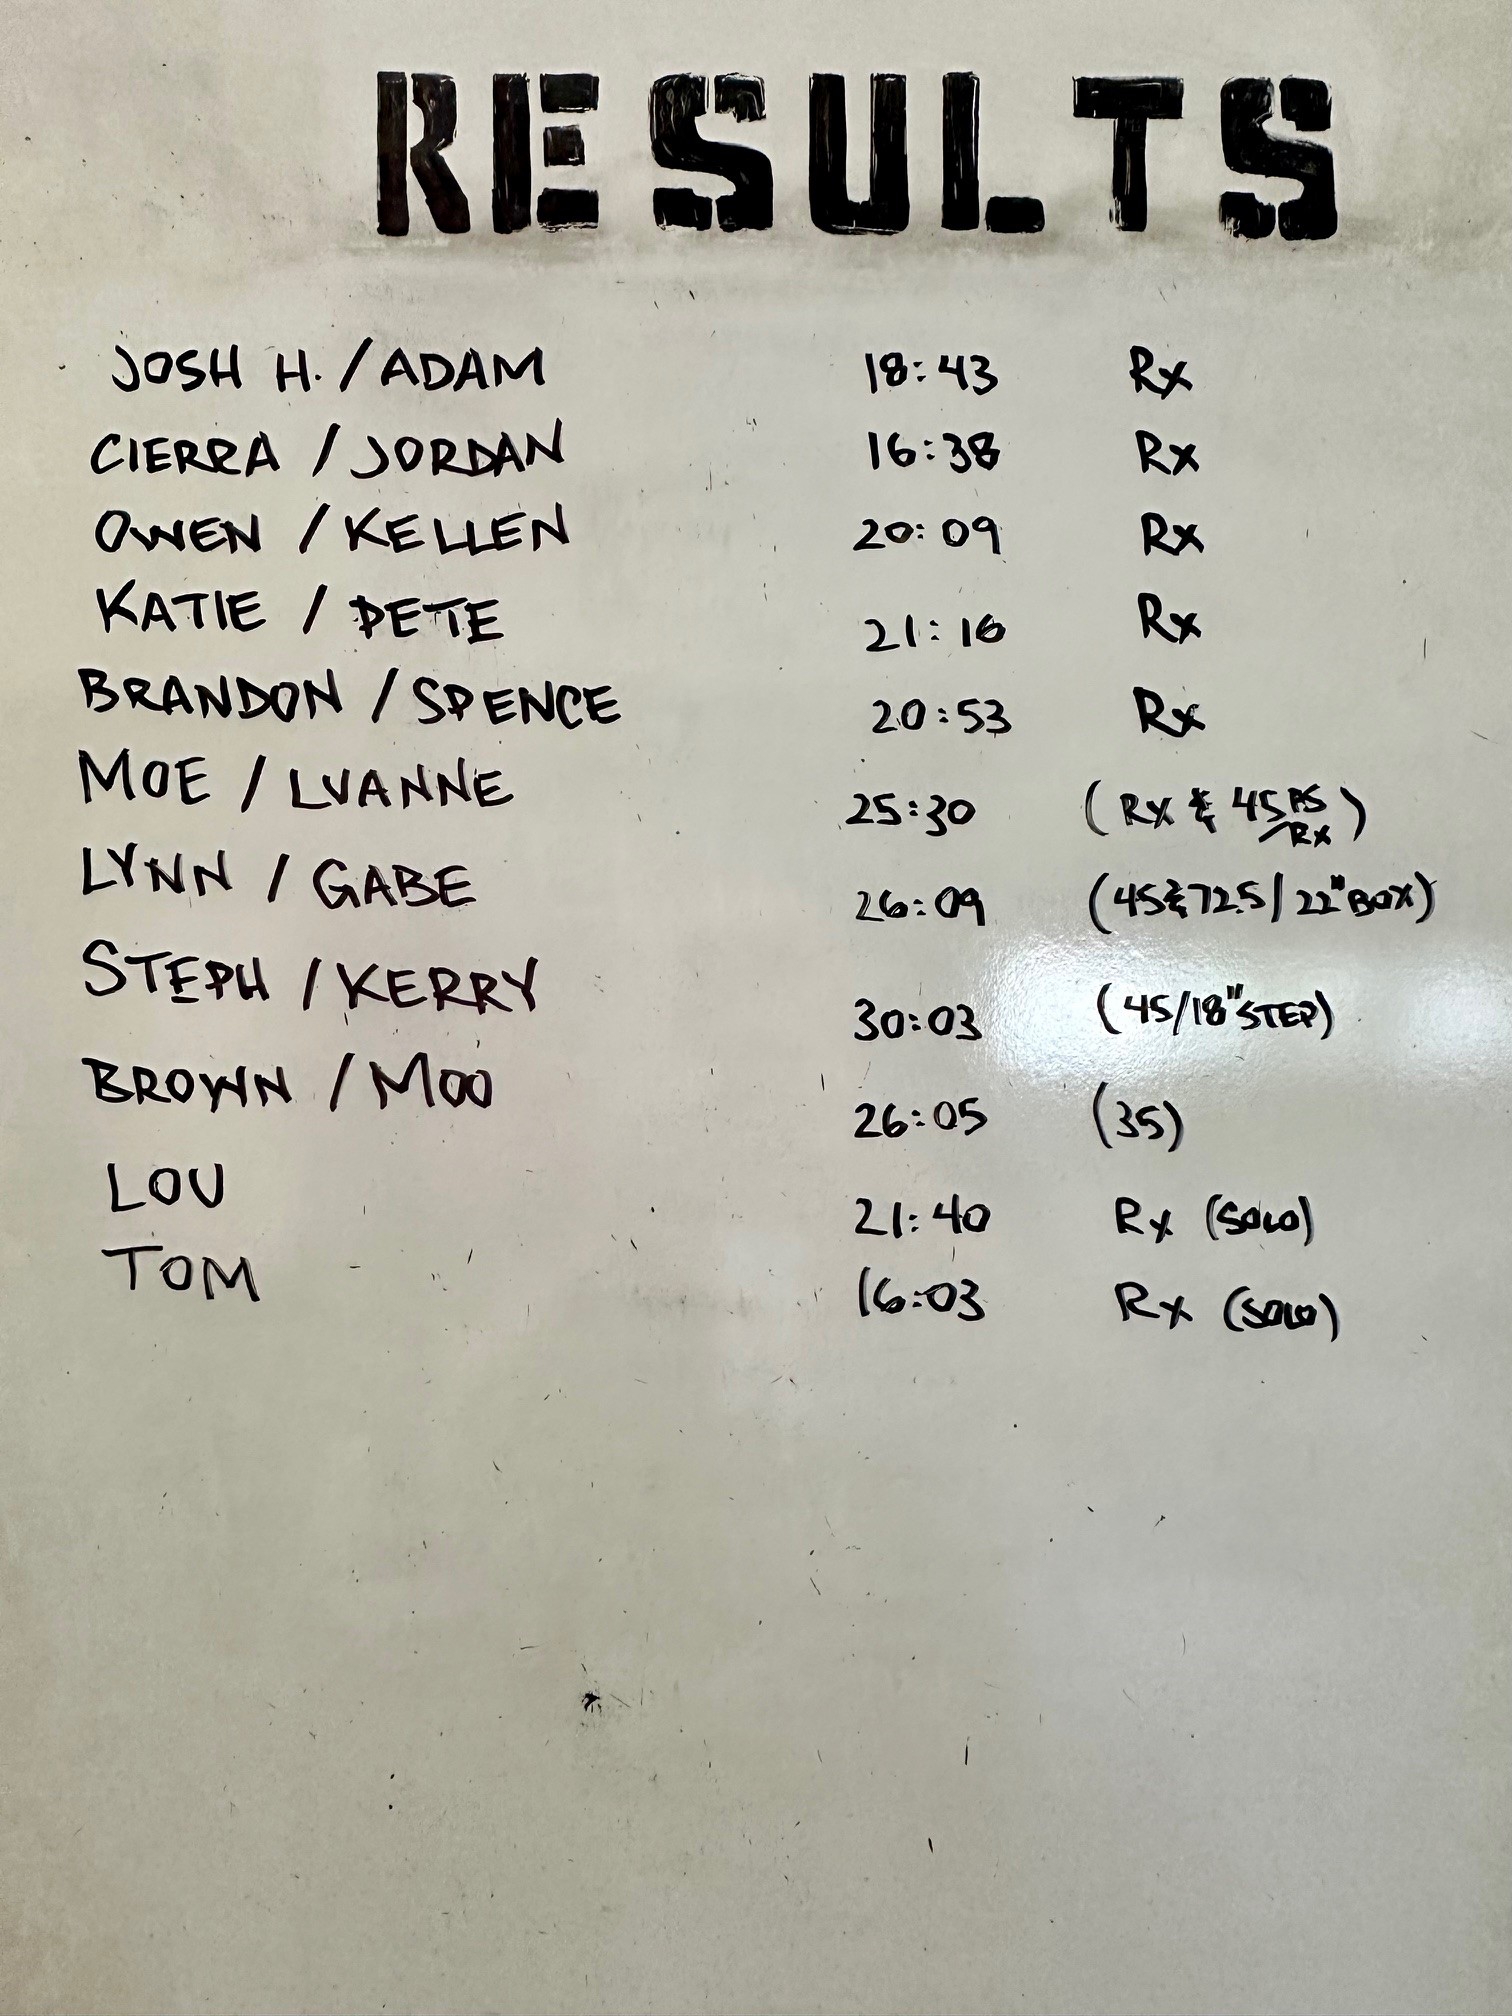 RESULTS
JOSH H. / ADAM 18:43 Rx
CIERRA / JORDAN 16:38 Rx
OWEN / KELLEN 20:09 Rx
KATIE / PETE 21:16 Rx
BRANDON / SPENCE 20:53 Rx
MOE / LUANNE 25:30 (Rx & 45 PS / Rx)
LYNN / GABE 26:09 (45 & 72.5 / 22" BOX)
STEPH / KERRY 30:03 (45/18" STEP)
BROWN / MOO 26:05 (35)
LOU 21:40 Rx (SOLO)
TOM 16:03 Rx (SOLO)